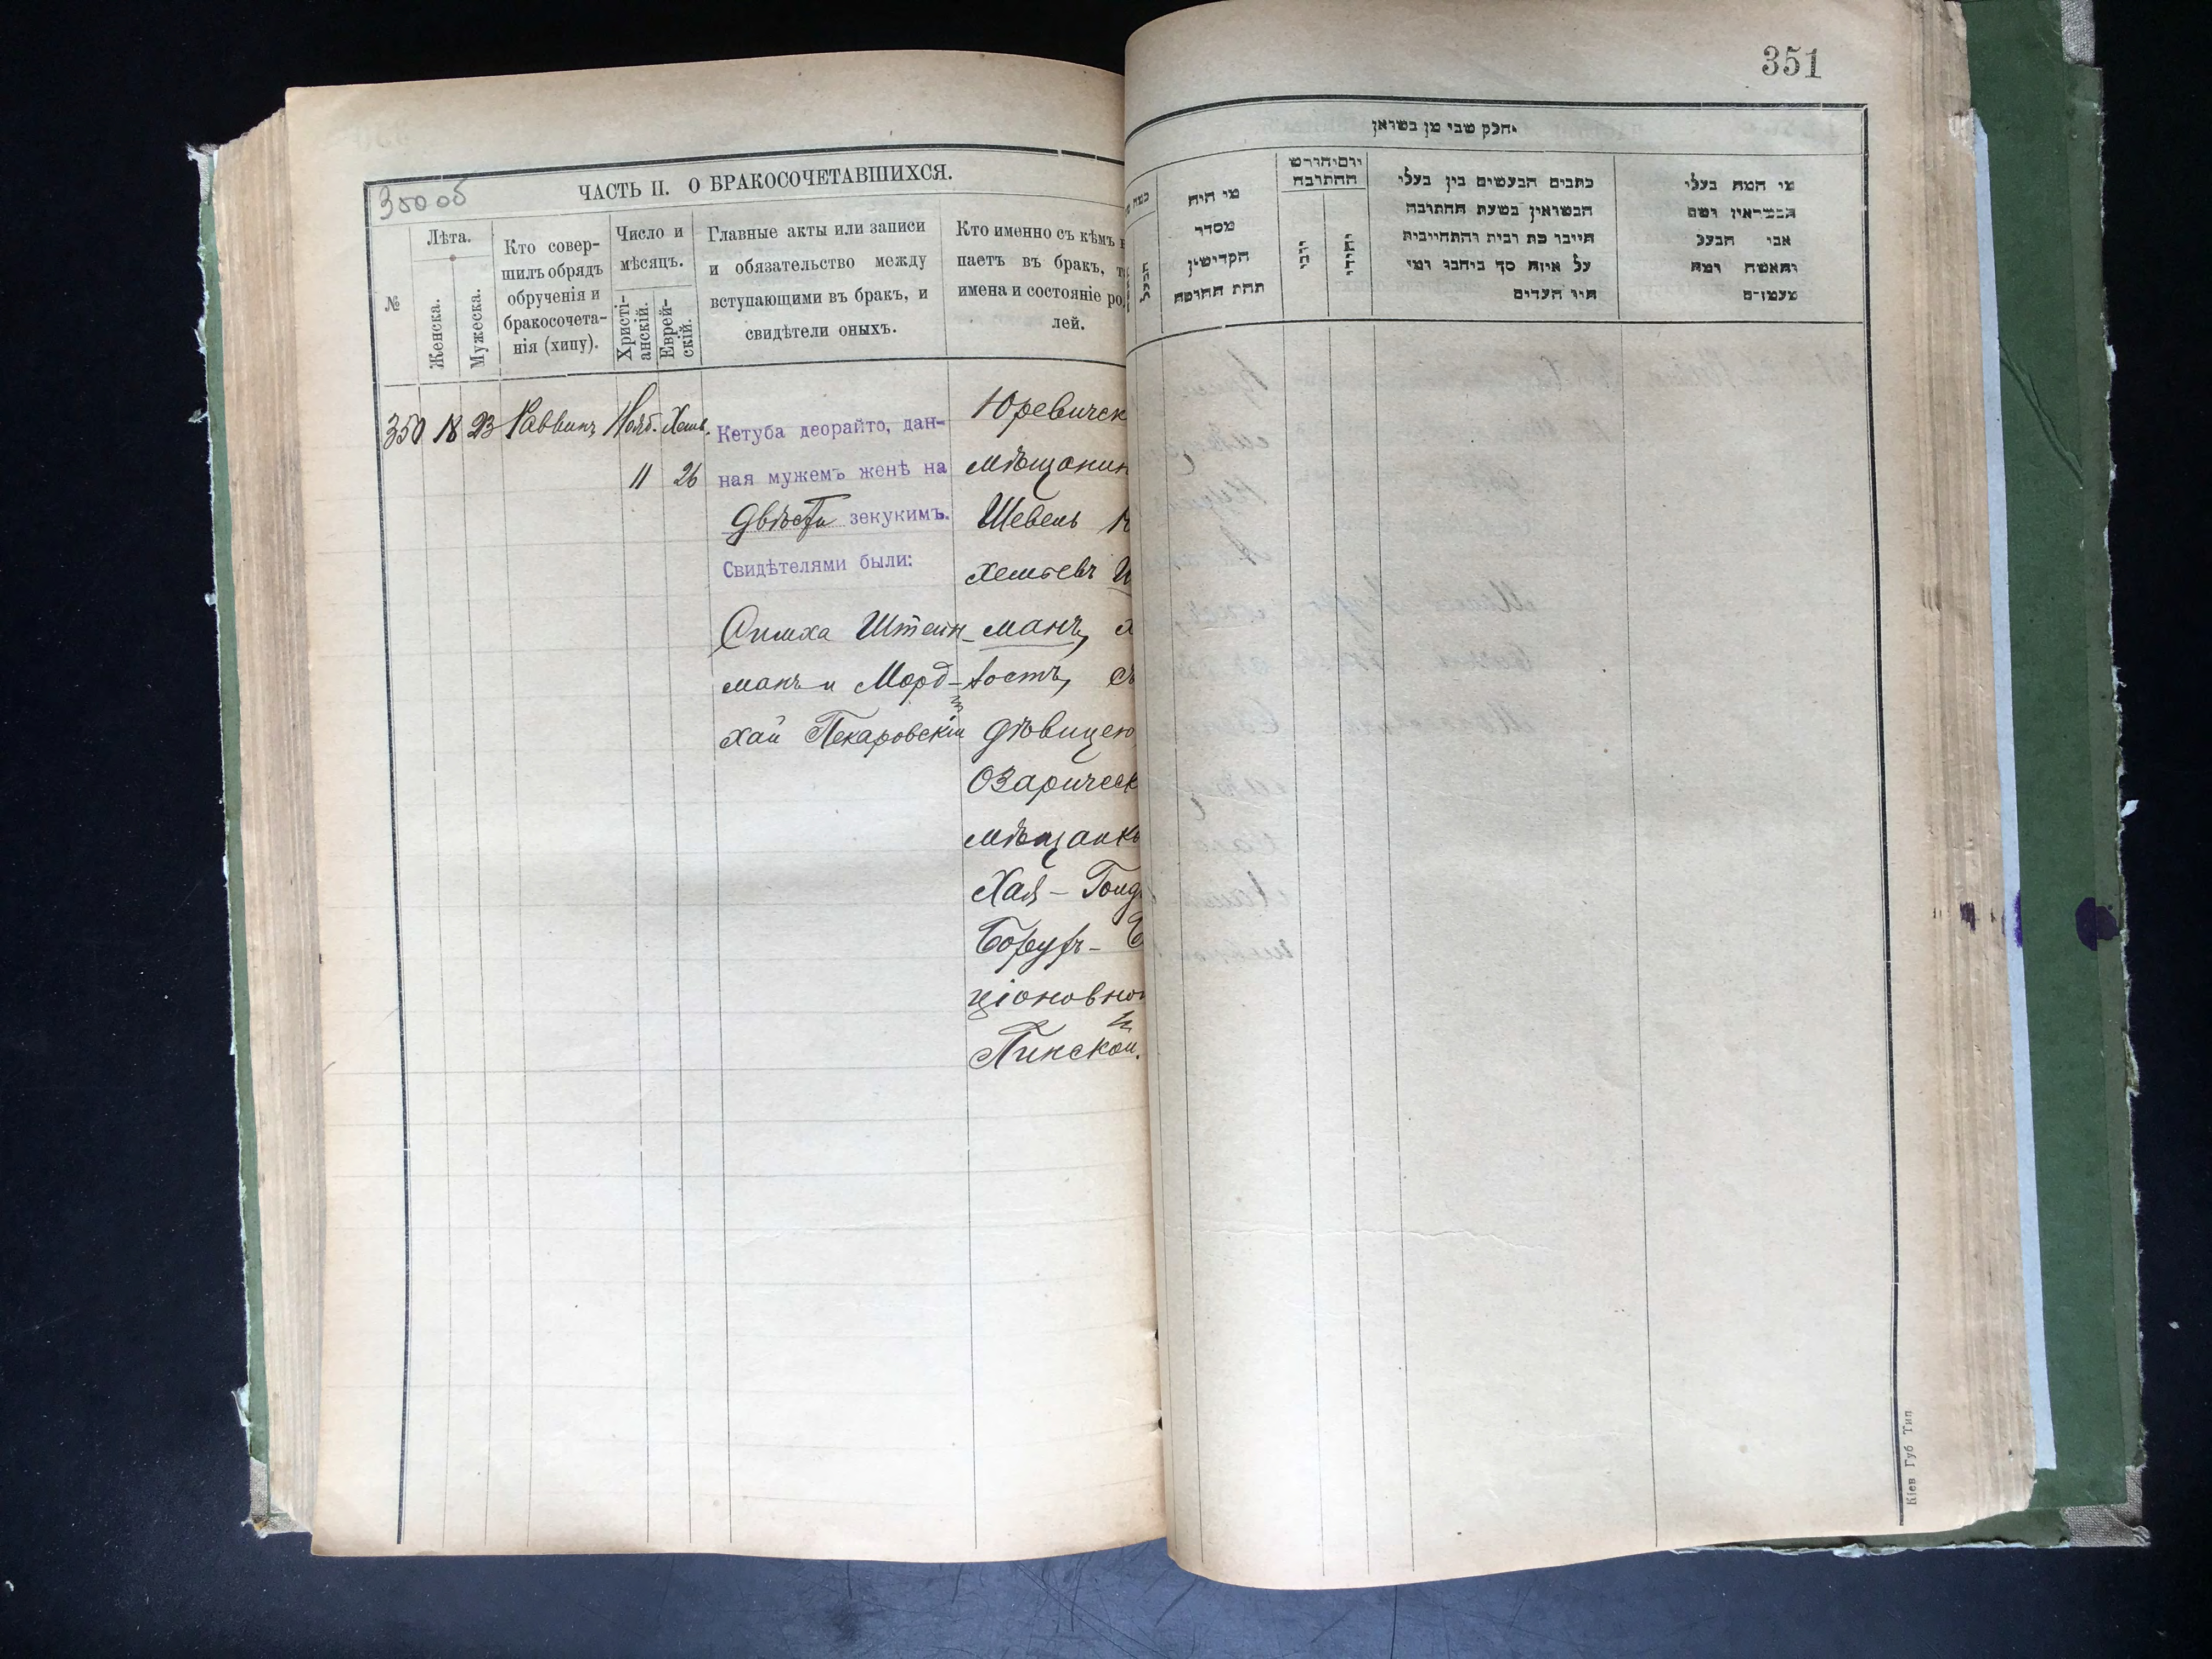 350 об
ЧАСТЬ II. О БРАКОСОЧЕТАВШИХСЯ.
№
Лѣта.
Женска.
Мужеска.
Кто совер-
шилъ обрядъ
обрученія и
бракосочета-
нія (хипу).
Число и
мѣсяцъ.
Христі-
анскій.
Еврей-
скій.
Главные акты или записи
и обязательство между
вступающими въ бракъ, и
свидѣтели оныхъ.
Кто именно съ кѣмъ
паетъ въ бракъ,
имена и состояніе ро
лей.
350 18 23 Раввинъ Нояб. Хешв.
11 26
Кетуба деорайто, дан-
ная мужемъ женѣ на
двѣсти зекукимъ.
Свидѣтелями были:
Симха Штейн-
манъ и Морд-
хай Пекаровскій
Юревичск
мѣщанин
Шевель
Хемьевъ
манъ,
лостъ, съ
дѣвицею
Озаричск
мѣщанк
Хая-Голд
Борухъ-
ціоновно
Пинской.
351
חלק שני מן נשואן
מי היה
מסדר
הקדישין
תחת החופה
יום וחודש
החתונה
נוצרי
יהודי
כתבים הנעשים בין בעלי
הנשואין בשעת החתונה
חייבו כת ובית והתחייבות
על איזה סך ביחבו ומי
היו העדים
מי המה בעלי
הנשואין ושם
אבי הבעל
והאשה ומה
מעמדם
הבעל
Кіев Губ Тип